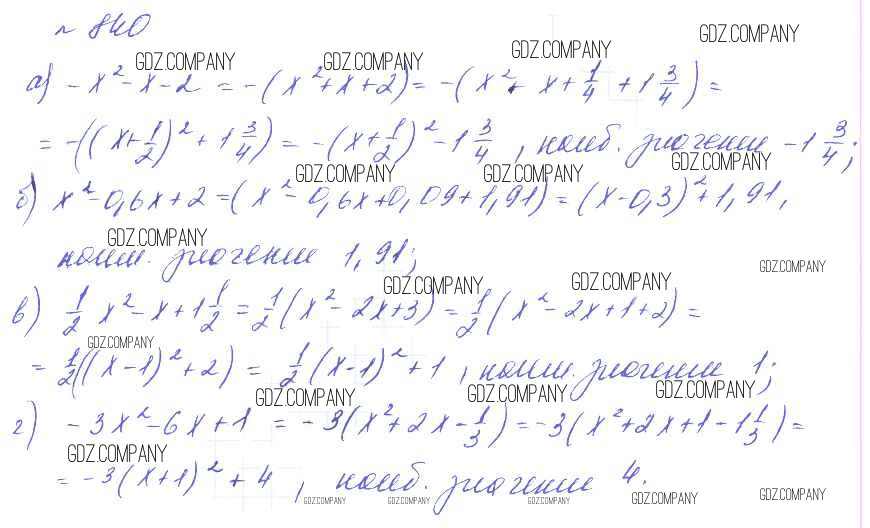 № 840
GDZ.COMPANY GDZ.COMPANY GDZ.COMPANY GDZ.COMPANY
а) -x² - x - 2 = -(x² + x + 2) = -(x² + x + 1/4 + 1 3/4) =
= -((x + 1/2)² + 1 3/4) = -(x + 1/2)² - 1 3/4, наиб. значение -1 3/4;
GDZ.COMPANY GDZ.COMPANY GDZ.COMPANY
б) x² - 0,6x + 2 = (x² - 0,6x + 0,09 + 1,91) = (x - 0,3)² + 1,91,
GDZ.COMPANY
наим. значение 1,91;
GDZ.COMPANY
GDZ.COMPANY GDZ.COMPANY
в) 1/2 x² - x + 1 1/2 = 1/2 (x² - 2x + 3) = 1/2 (x² - 2x + 1 + 2) =
GDZ.COMPANY
= 1/2 ((x - 1)² + 2) = 1/2 (x - 1)² + 1, наим. значение 1;
GDZ.COMPANY GDZ.COMPANY GDZ.COMPANY
г) -3x² - 6x + 1 = -3(x² + 2x - 1/3) = -3(x² + 2x + 1 - 1 1/3) =
GDZ.COMPANY
= -3(x + 1)² + 4, наиб. значение 4.
GDZ.COMPANY GDZ.COMPANY GDZ.COMPANY GDZ.COMPANY GDZ.COMPANY